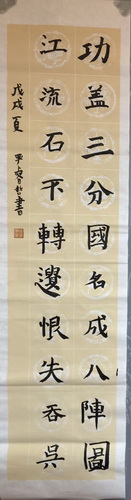 功盖三分國名成八陣圖
江流石不轉遺恨失吞吳
戊戌夏